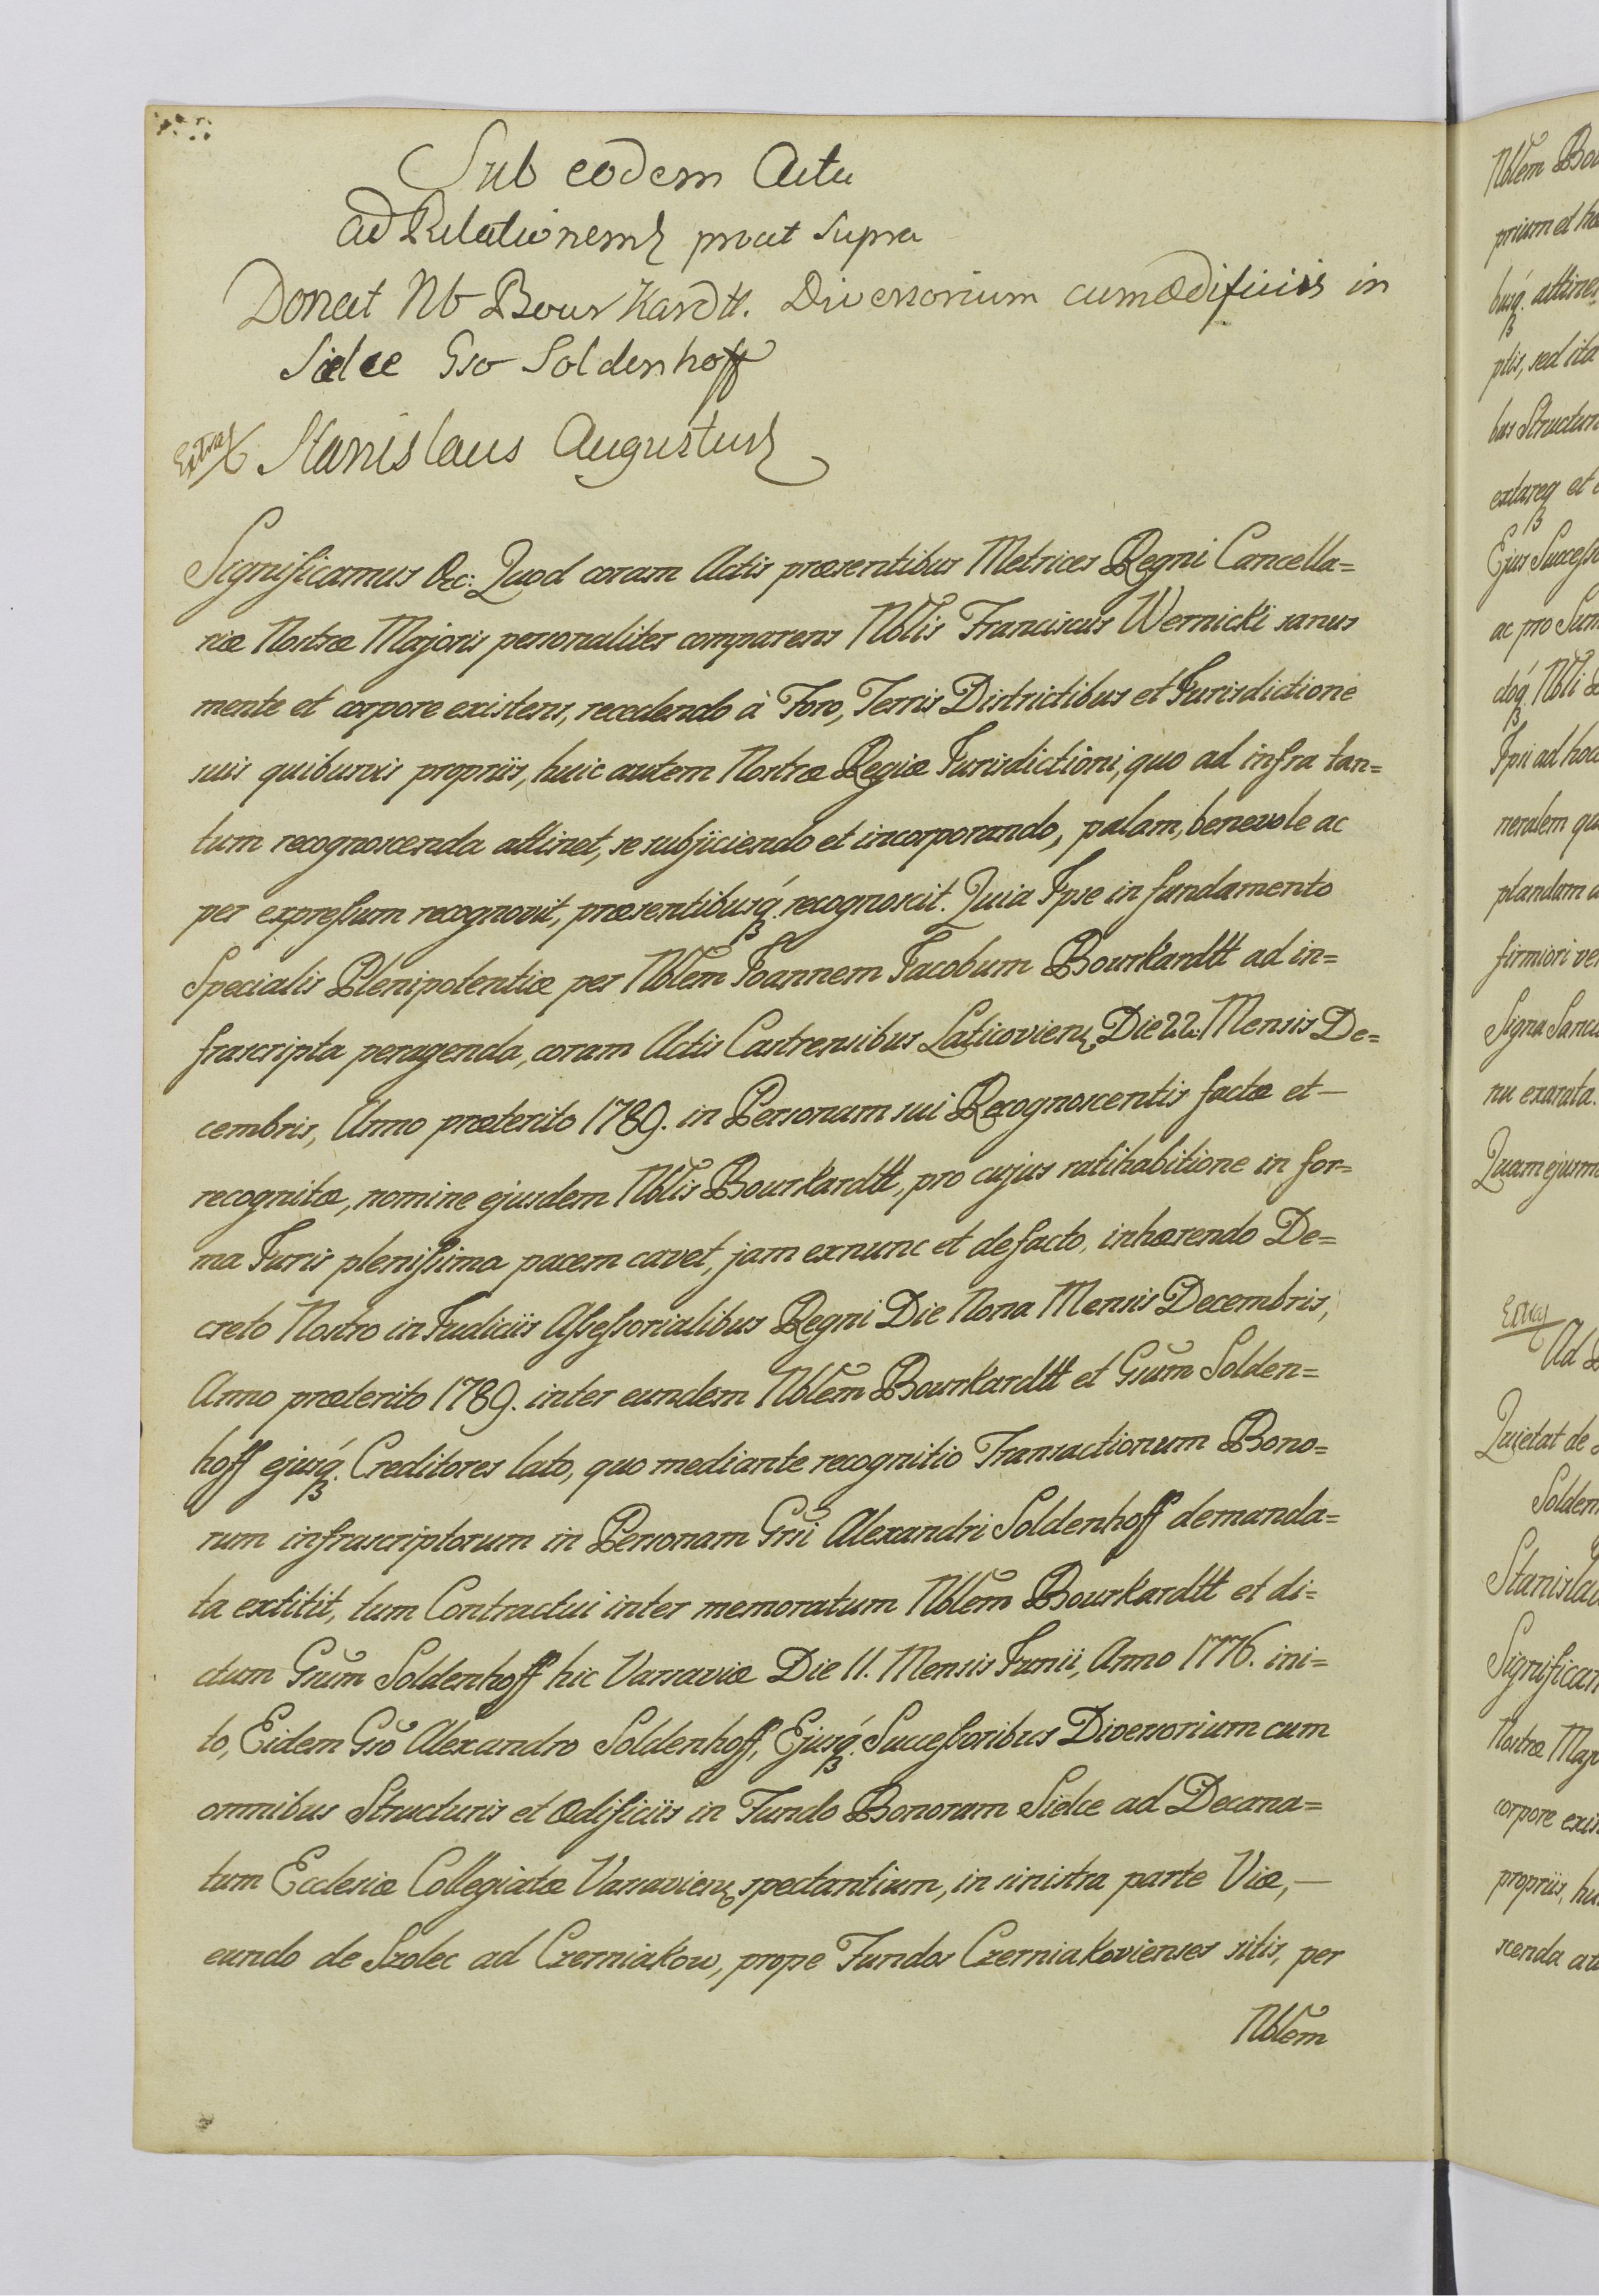 Sub eodem Actu
ad Relationem prout supra
Donat Nb Bourkardtt. Diversorium cum ædificiis in
Sielce Gso Soldenhoff
Extras Stanislaus Augustus
Significamus &c: Quod coram Actis præsentibus Metrices Regni Cancella=
riæ Nostræ Majoris personaliter comparens Nblis Franciscus Wernicki sanus
mente et corpore existens, recedendo à Foro, Terris Districtibus et Jurisdictione
suis quibusvis propriis, huic autem Nostræ Regiæ Jurisdictioni, quo ad infra tan=
tum recognoscenda attinet, se subjiciendo et incorporando, palam, benevole ac
per expressum recognovit, præsentibusq́. recognoscit. Quia Ipse in fundamento
Specialis Plenipotentiæ per Nblem Joannem Jacobum Bourkardtt ad in=
frascripta peragenda, coram Actis Castrensibus Laticovien Die 22. Mensis De=
cembris, Anno præterito 1789. in Personam sui Recognoscentis factæ et —
recognitæ, nomine ejusdem Nblis Bourkardtt, pro cujus ratihabitione in for=
ma Juris plenissima pacem cavet, jam exnunc et defacto, inhærendo De=
creto Nostro in Judiciis Assessorialibus Regni Die Nona Mensis Decembris,
Anno præterito 1789. inter eundem Nblem Bourkardtt et Gsum Solden=
hoff ejusq́. Creditores lato, quo mediante recognitio Transactionum Bono=
rum infrascriptorum in Personam Gsi Alexandri Soldenhoff demanda=
ta extitit, tum Contractui inter memoratum Nblem Bourkardtt et di=
ctum Gsum Soldenhoff hic Varsaviæ Die 11. Mensis Junii, Anno 1776. ini=
to, Eidem Gso Alexandro Soldenhoff, Ejusq́. Successoribus Diversorium cum
omnibus Structuris et Ædificiis in Fundo Bonorum Sielce ad Decana=
tum Ecclesiæ Collegiatæ Varsavien spectantium, in sinistra parte Viæ, —
eundo de Szolec ad Czerniakow, prope Fundos Czerniakovienses sitis, per
Nblem
Nblem Bou
prium et ha
busq́. attine
ptis, sed ita
bus Structur
extareq et
Ejus Successo
ac pro Sum
doq́. Nbli
Ipsi ad hoc
neralem qu
plandam
firmiori ve
Signa Sancta
nu exarata.
Quam ejusm
Extras
Ad
Quietat de
Solden
Stanislau
Significam
Nostræ Majo
corpore exis
propriis, hu
scenda at